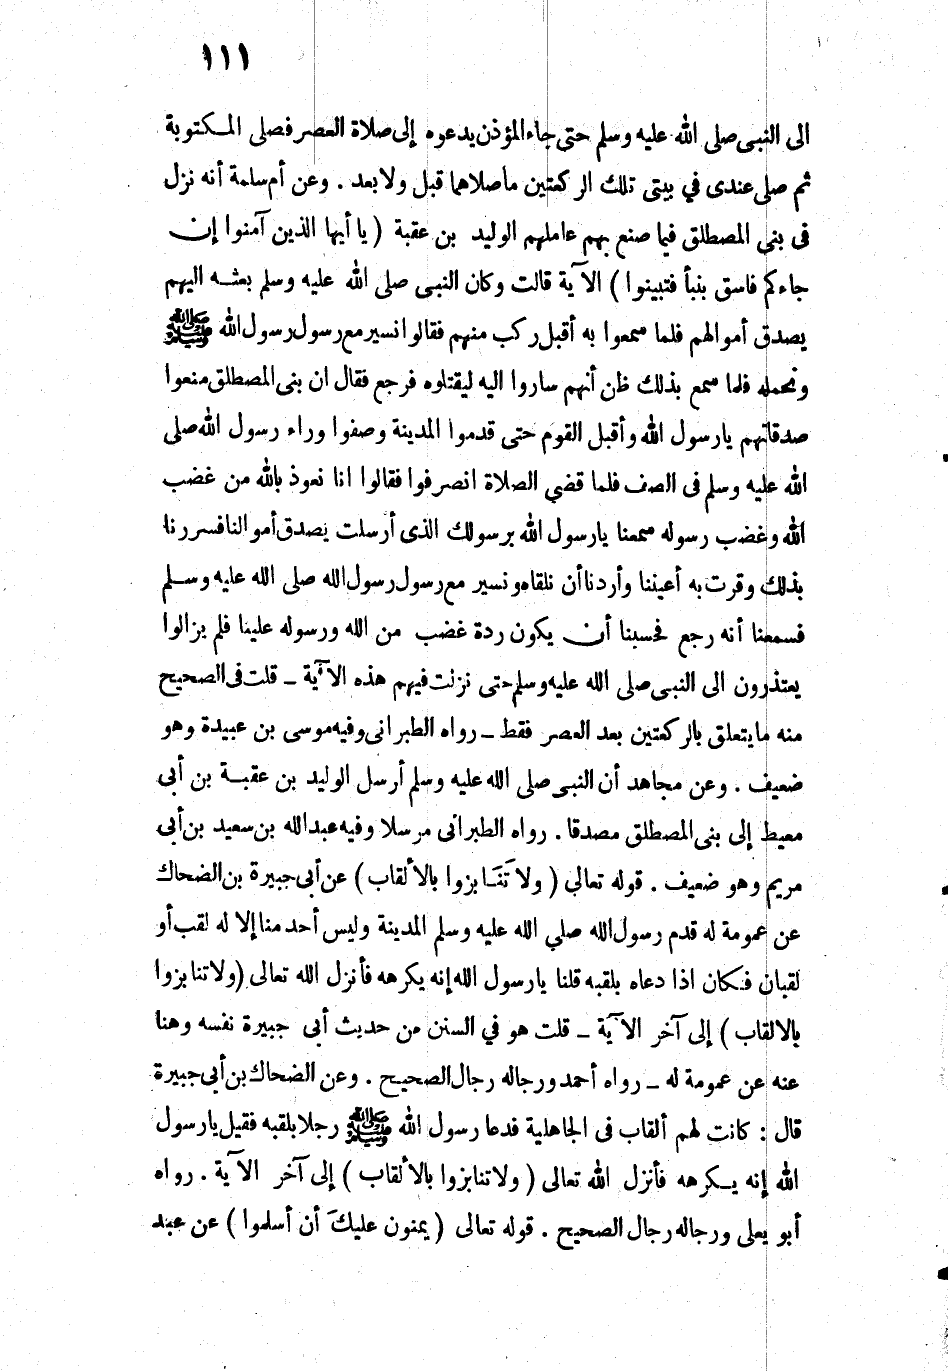 ١١١
الى النبى صلى الله عليه وسلم حتى جاء المؤذن يدعوه إلى صلاة العصر فصلى المكتوبة
ثم صلى عندى في بيتى تلك الركعتين ماصلاهما قبل ولا بعد . وعن أم سلمة أنه نزل
فى بنى المصطلق فيما صنع بهم عاملهم الوليد بن عقبة ( يا أيها الذين آمنوا إن
جاءكم فاسق بنبأ فتبينوا ) الآية قالت وكان النبى صلى الله عليه وسلم بعثه اليهم
يصدق أموالهم فلما سمعوا به أقبل ركب منهم فقالوا نسير مع رسول رسول الله ﷺ
ونحمله فلما سمع بذلك ظن أنهم ساروا اليه ليقتلوه فرجع فقال ان بنى المصطلق منعوا
صدقاتهم يارسول الله وأقبل القوم حتى قدموا المدينة وصفوا وراء رسول الله صلى
الله عليه وسلم فى الصف فلما قضي الصلاة انصرفوا فقالوا انا نعوذ بالله من غضب
الله وغضب رسوله سمعنا يارسول الله برسولك الذى أرسلت يصدق أموالنا فسررنا
بذلك وقرت به أعيننا وأردنا أن نلقاه ونسير مع رسول رسول الله صلى الله عليه وسلم
فسمعنا أنه رجع فحسبنا أن يكون ردة غضب من الله ورسوله علينا فلم يزالوا
يعتذرون الى النبى صلى الله عليه وسلم حتى نزلت فيهم هذه الآية ــ قلت فى الصحيح
منه ما يتعلق بالركعتين بعد العصر فقط ــ رواه الطبرانى وفيه موسى بن عبيدة وهو
ضعيف . وعن مجاهد أن النبى صلى الله عليه وسلم أرسل الوليد بن عقبة بن أبى
معيط إلى بنى المصطلق مصدقا . رواه الطبرانى مرسلا وفيه عبدالله بن سعيد بن أبى
مريم وهو ضعيف . قوله تعالى ( ولا تَنَابزوا بالألقاب ) عن أبى جبيرة بن الضحاك
عن عمومة له قدم رسول الله صلي الله عليه وسلم المدينة وليس أحد منا إلا له لقب أو
لقبان فكان اذا دعاه بلقبه قلنا يارسول الله إنه يكرهه فأنزل الله تعالى (ولا تنابزوا
بالالقاب ) إلى آخر الآية ــ قلت هو في السنن من حديث أبى جبيرة نفسه وهنا
عنه عن عمومة له ــ رواه أحمد ورجاله رجال الصحيح . وعن الضحاك بن أبى جبيرة
قال : كانت لهم ألقاب فى الجاهلية فدعا رسول الله ﷺ رجلا بلقبه فقيل يارسول
الله إنه يكرهه فأنزل الله تعالى ( ولا تنابزوا بالألقاب ) إلى آخر الآية . رواه
أبو يعلى ورجاله رجال الصحيح . قوله تعالى ( يمنون عليكَ أن أسلموا ) عن عبد